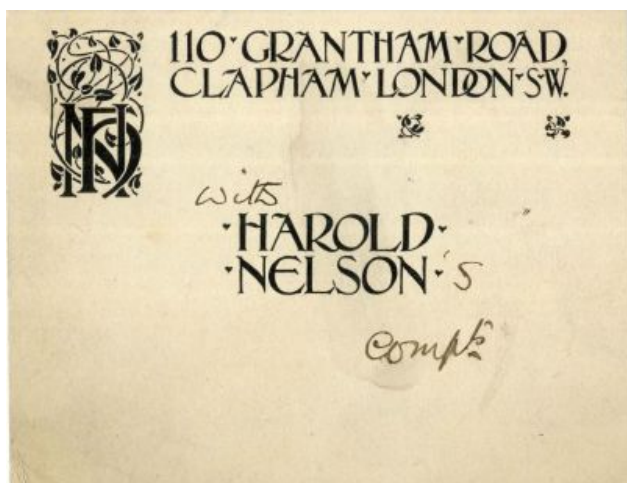 110·GRANTHAM·ROAD,
CLAPHAM·LONDON·S·W.
HN
with
·HAROLD·
·NELSON·'s
Compts